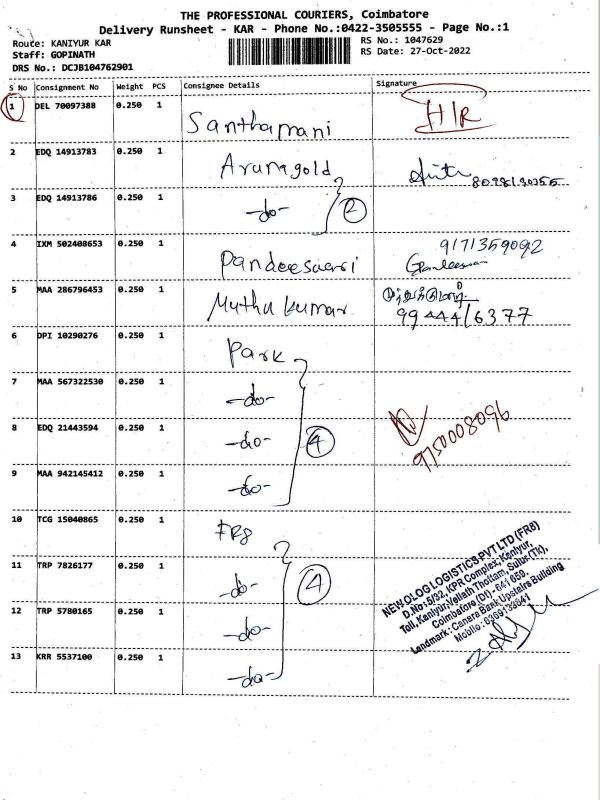 THE PROFESSIONAL COURIERS, Coimbatore
Delivery Runsheet - KAR - Phone No.:0422-3505555 - Page No.:1
Route: KANIYUR KAR
RS No.: 1047629
Staff: GOPINATH
RS Date: 27-Oct-2022
DRS No.: DCJB104762901
S No Consignment No Weight PCS Consignee Details Signature
1 DEL 70097388 0.250 1 Santhamani H/R
2 EDQ 14913783 0.250 1 Arunagold
3 EDQ 14913786 0.250 1 -do- 2
4 IXM 502408653 0.250 1 Pandeeswari 9171359092
5 MAA 286796453 0.250 1 Muthu kumar
9944416377
6 DPI 10290276 0.250 1 Park
7 MAA 567322530 0.250 1 -do-
8 EDQ 21443594 0.250 1 -do- 4 9750008096
9 MAA 942145412 0.250 1 -do-
10 TCG 15040865 0.250 1 FR8
11 TRP 7826177 0.250 1 -do- 4
12 TRP 5780165 0.250 1 -do-
13 KRR 5537100 0.250 1 -do-
NEW OLOG LOGISTICS PVT LTD (FR8)
D.No : 5/32, KPR Complex, Kaniyur,
Toll, Kaniyur, Vellath Thottam, Sulur (Tk),
Coimbatore (Dt) - 641 659.
Landmark : Canara Bank Upstairs Building
Mobile : 6369133641